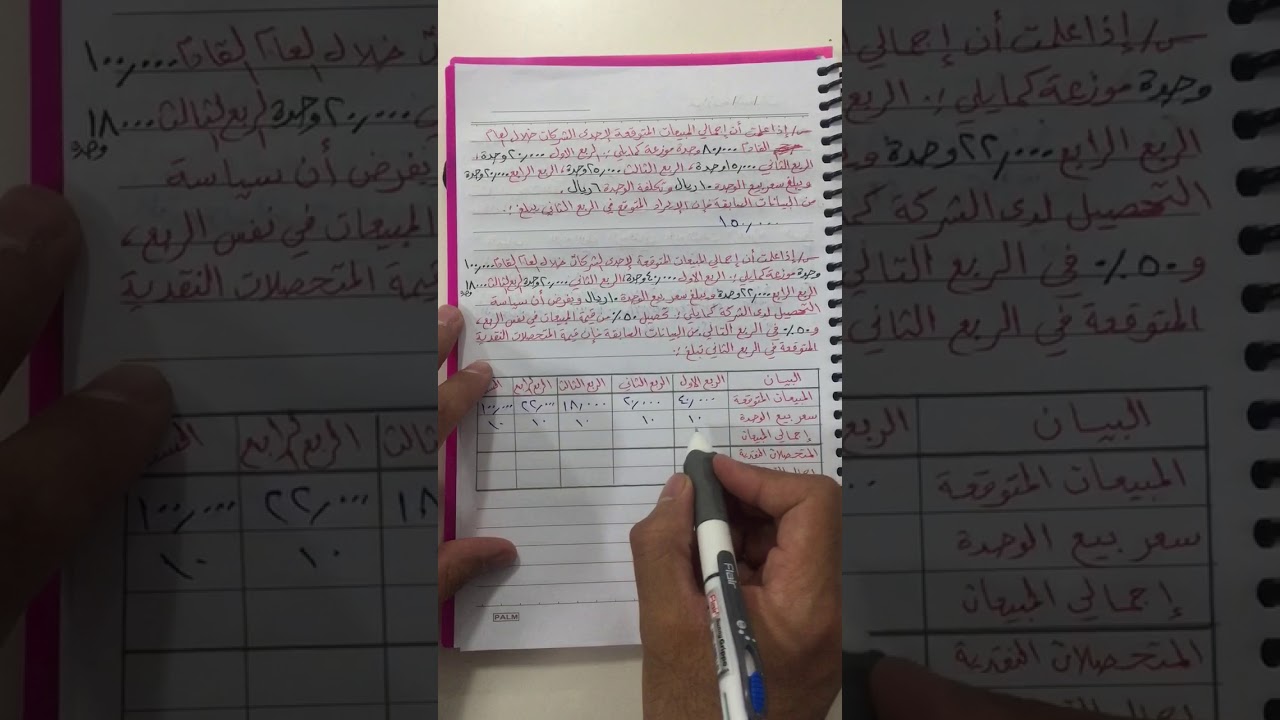 س/ إذا علمت أن إجمالي المبيعات المتوقعة لإحدى الشركات خلال لعام
القادم ٨٠,٠٠٠ وحدة موزعة كمايلي :. الربع الاول ٢٠,٠٠٠ وحدة ،
الربع الثاني ١٥,٠٠٠ وحدة ، الربع الثالث ٢٥,٠٠٠ وحدة ، الربع الرابع ٢٠,٠٠٠ وحدة
و يبلغ سعر بيع الوحدة ١٠ ريال و تكلفة الوحدة ٦ ريال .
من البيانات السابقة فإن الإيراد المتوقع في الربع الثاني يبلغ :.
١٥٠,٠٠٠
س/ إذا علمت أن إجمالي المبيعات المتوقعة لإحدى الشركات خلال لعام القادم ١٠٠,٠٠٠
وحدة موزعة كمايلي :. الربع الاول ٤٠,٠٠٠ وحدة الربع الثاني ٢٠,٠٠٠ وحدة الربع الثالث ١٨,٠٠٠ وحدة
الربع الرابع ٢٢,٠٠٠ وحدة و يبلغ سعر بيع الوحدة ١٠ ريال و يفرض أن سياسة
التحصيل لدى الشركة كمايلي :. تحصيل ٥٠٪ من قيمة المبيعات في نفس الربع ،
و ٥٠٪ في الربع التالي من البيانات السابقة فإن قيمة المتحصلات النقدية
المتوقعة في الربع الثاني تبلغ :.
البيان الربع الاول الربع الثاني الربع الثالث الربع الرابع
المبيعات المتوقعة ٤٠,٠٠٠ ٢٠,٠٠٠ ١٨,٠٠٠ ٢٢,٠٠٠ ١٠٠,٠٠٠
سعر بيع الوحدة ١٠ ١٠ ١٠ ١٠ ١٠
إجمالي المبيعات
المتحصلات النقدية
PALM
Flair